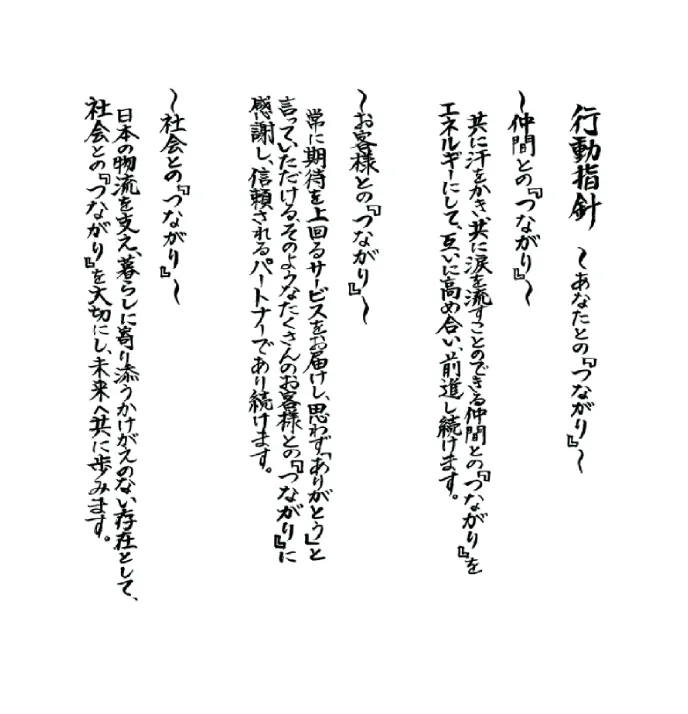 行動指針 〜あなたとの『つながり』〜
〜仲間との『つながり』〜
共に汗をかき、共に涙を流すことのできる仲間との『つながり』を
エネルギーにして、互いに高め合い、前進し続けます。
〜お客様との『つながり』〜
常に期待を上回るサービスをお届けし、思わず「ありがとう」と
言っていただける、そのようなたくさんのお客様との『つながり』に
感謝し、信頼されるパートナーであり続けます。
〜社会との『つながり』〜
日本の物流を支え、暮らしに寄り添うかけがえのない存在として、
社会との『つながり』を大切にし、未来へ共に歩みます。